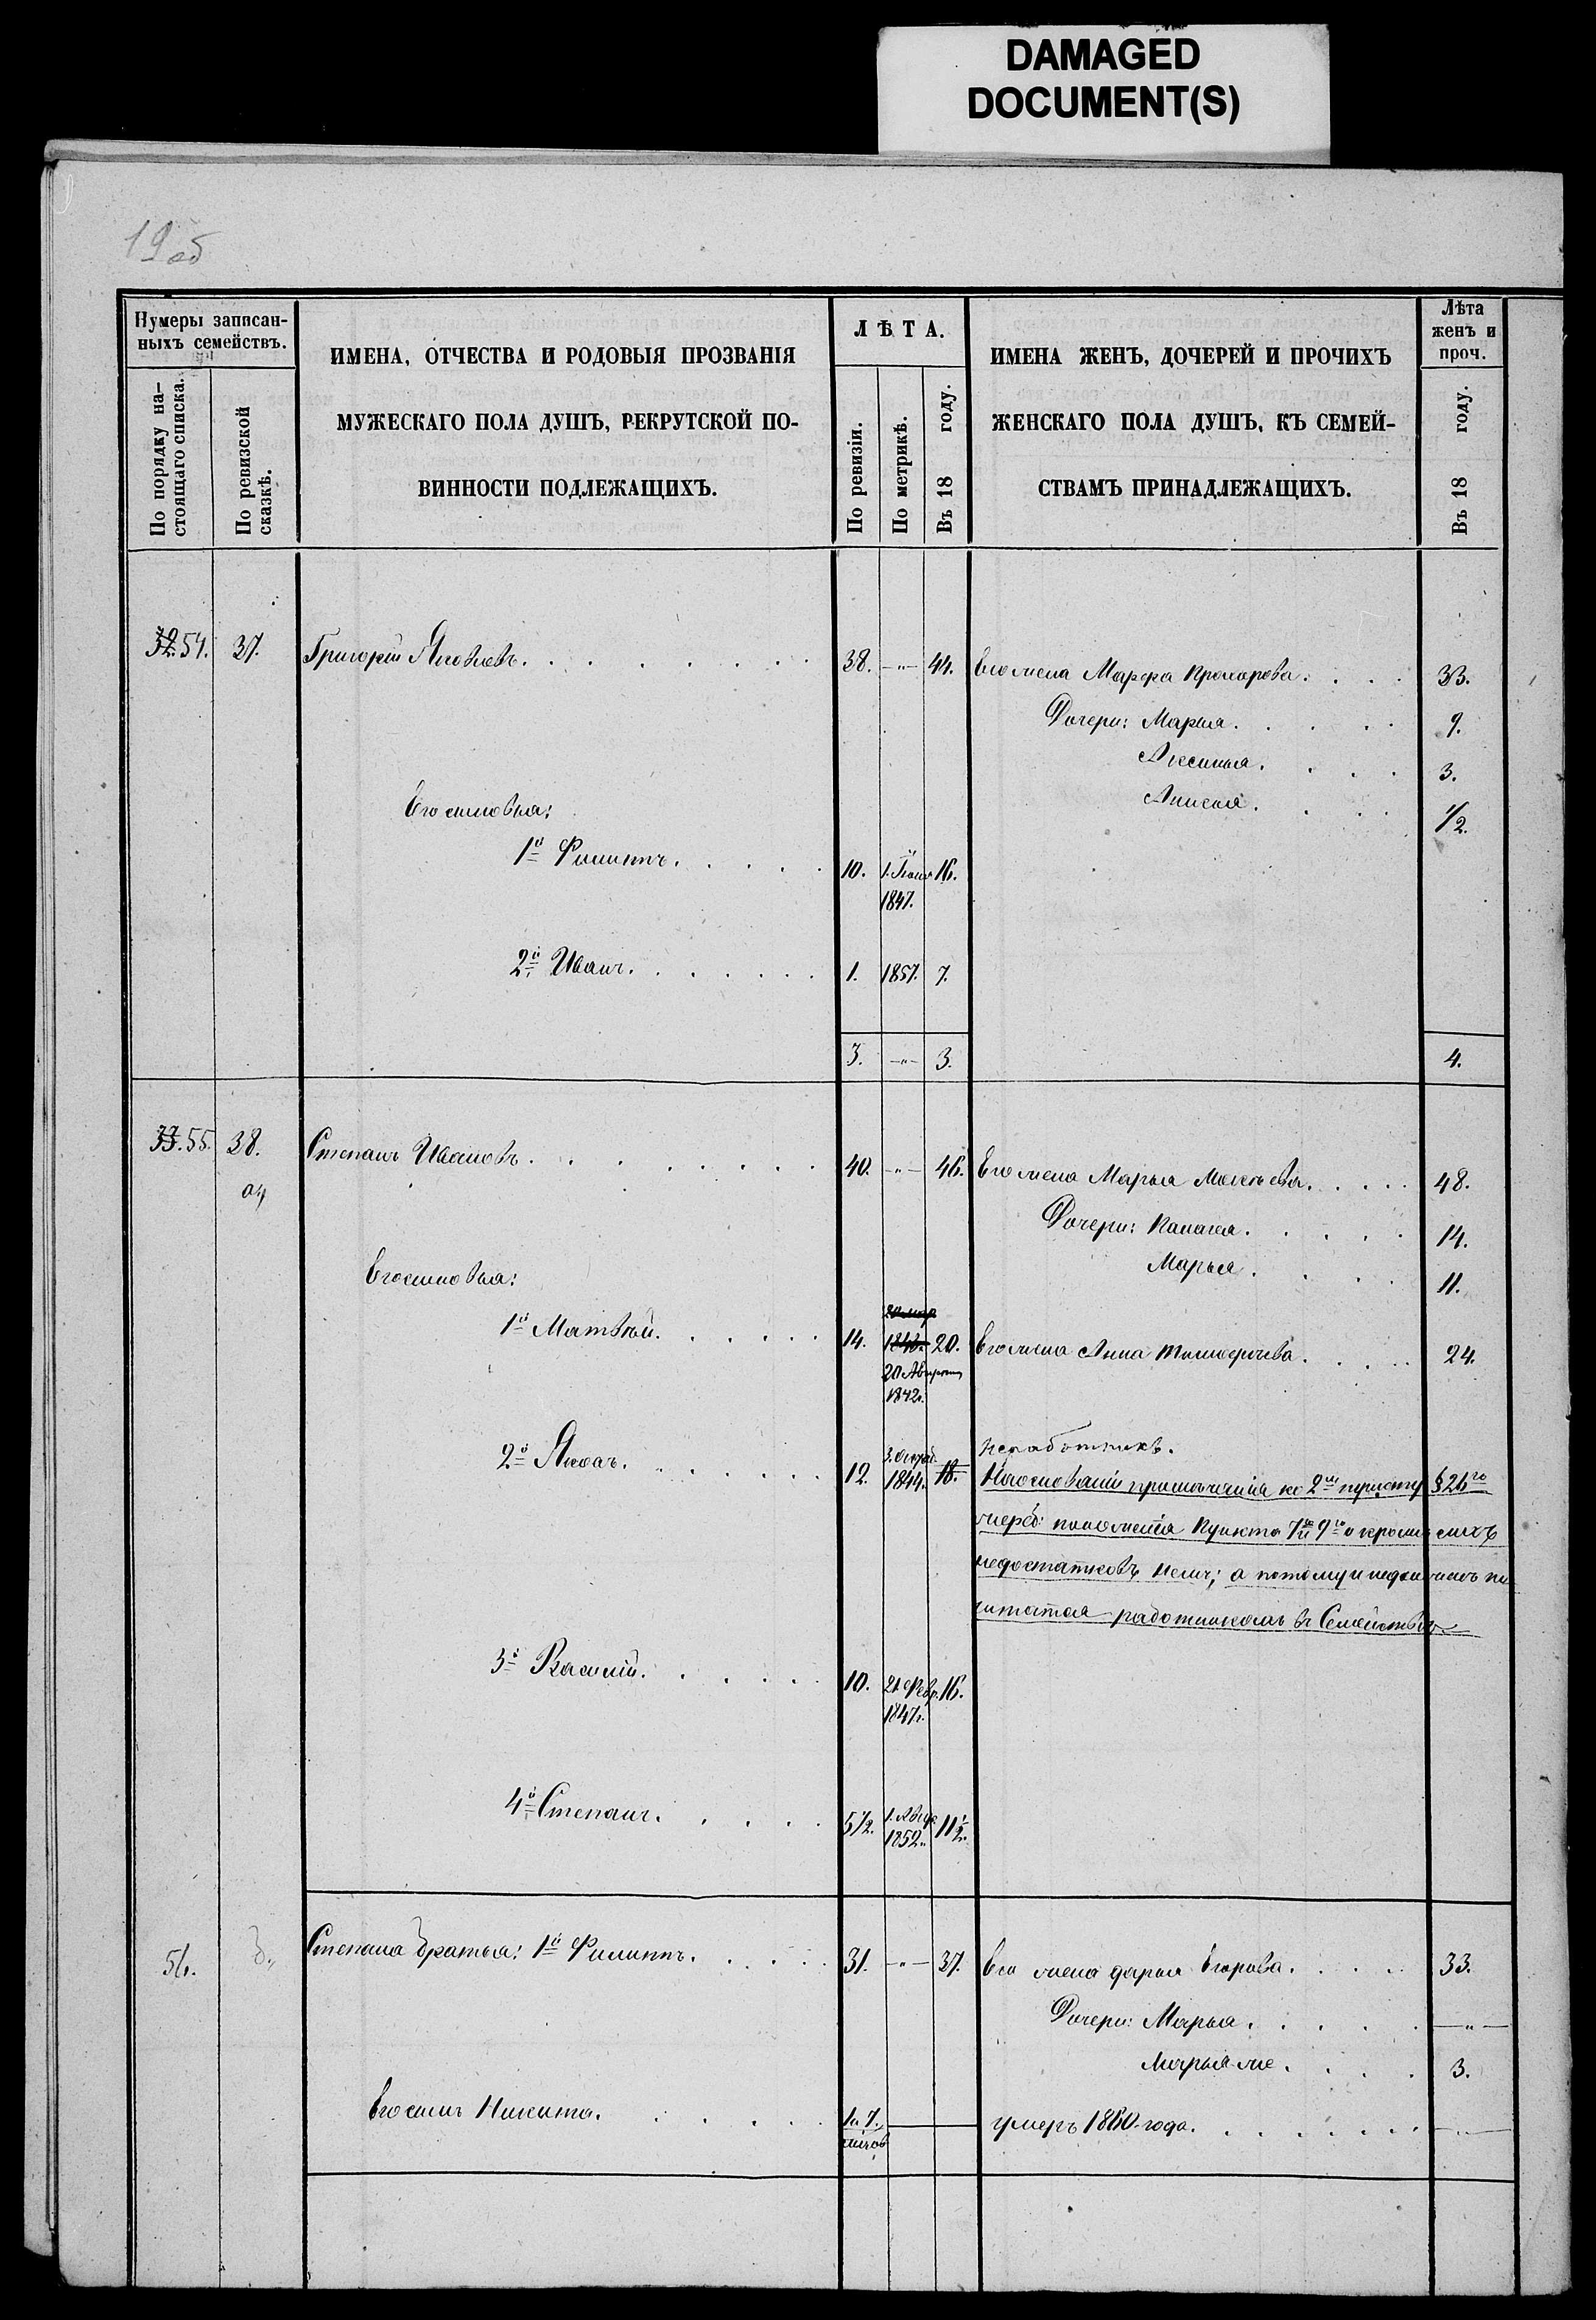 DAMAGED
DOCUMENT(S)
19 об
Нумеры записан-
ныхъ семействъ.
По порядку на-
стоящаго списка.
По ревизской
сказкѣ.
ИМЕНА, ОТЧЕСТВА И РОДОВЫЯ ПРОЗВАНІЯ
МУЖЕСКАГО ПОЛА ДУШЪ, РЕКРУТСКОЙ ПО-
ВИННОСТИ ПОДЛЕЖАЩИХЪ.
ЛѢТА.
По ревизіи.
По метрикѣ.
Въ 18 году.
ИМЕНА ЖЕНЪ, ДОЧЕРЕЙ И ПРОЧИХЪ
ЖЕНСКАГО ПОЛА ДУШЪ, КЪ СЕМЕЙ-
СТВАМЪ ПРИНАДЛЕЖАЩИХЪ.
Лѣта
женъ и
проч.
Въ 18 году.
32. 54. 37. Григорій Яковлевъ. 38. -"- 44. Его жена Марфа Прохорова. 33.
Дочери: Марья. 9.
Аксинья. 3.
Его сыновья: Анисья. 1/2.
1й Филиппъ. 10. 1. 1847. 16.
2й Иванъ. 1. 1857. 7.
3. -"- 3. 4.
33. 55. 38. Степанъ Ивановъ. 40. -"- 46. Его жена Марья 48.
а,,
Дочери: 14.
Его сыновья: Марья. 11.
1й Матвѣй. 14. 1843. 20. Его жена Анна Тимофѣева. 24.
20 Августа
1842.
2й Яковъ. 12. 3. Октяб. 1844. 18. неработникъ.
На основаніи примѣчанія ко 2му пункту § 26го
жереб: положенія Пункта 7 и 9го и кромѣ сихъ
недостатковъ неимѣ; а потому и недолженъ по
читатся работникомъ въ Семействѣ
3й Василій. 10. 21. Февр. 1847г. 16.
4й Степанъ. 5 1/2. 1. Авгус 1852. 11 1/2.
56. б,, Степана братья: 1й Филиппъ. 31. -"- 37. Его жена Дарья Егорова. 33.
Дочери: Марья. -"-
Марья-же. 3.
Его сынъ Никита. 1 и 7. умеръ 1860 года. -"-